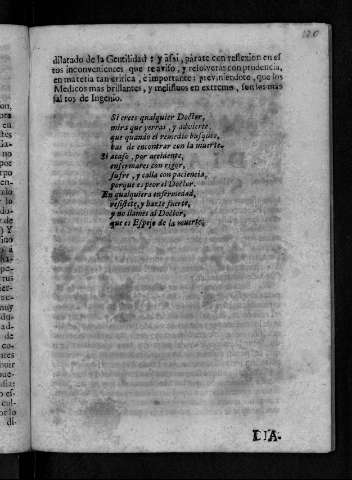 dilatado de la Gentilidad: y assi, párate con reflexion en es
tos inconvenientes que te aviso, y resolverás con prudencia,
en materia tan critica, è importante: previniendote, que los
Medicos mas brillantes, y melifluos en extremo, son los mas
faltos de Ingenio.
Si eres qualquier Doctor,
mira que yerras, y advierte,
que quando el remedio busques,
has de encontrar con la muerte.
Si acaso, por accidente,
enfermares con rigor,
sufre, y calla con paciencia,
porque es peor el Doctor.
En qualquiera enfermedad,
resistete, y hazte fuerte,
y no llames al Doctor,
que es Espejo de la muerte.
DIA.